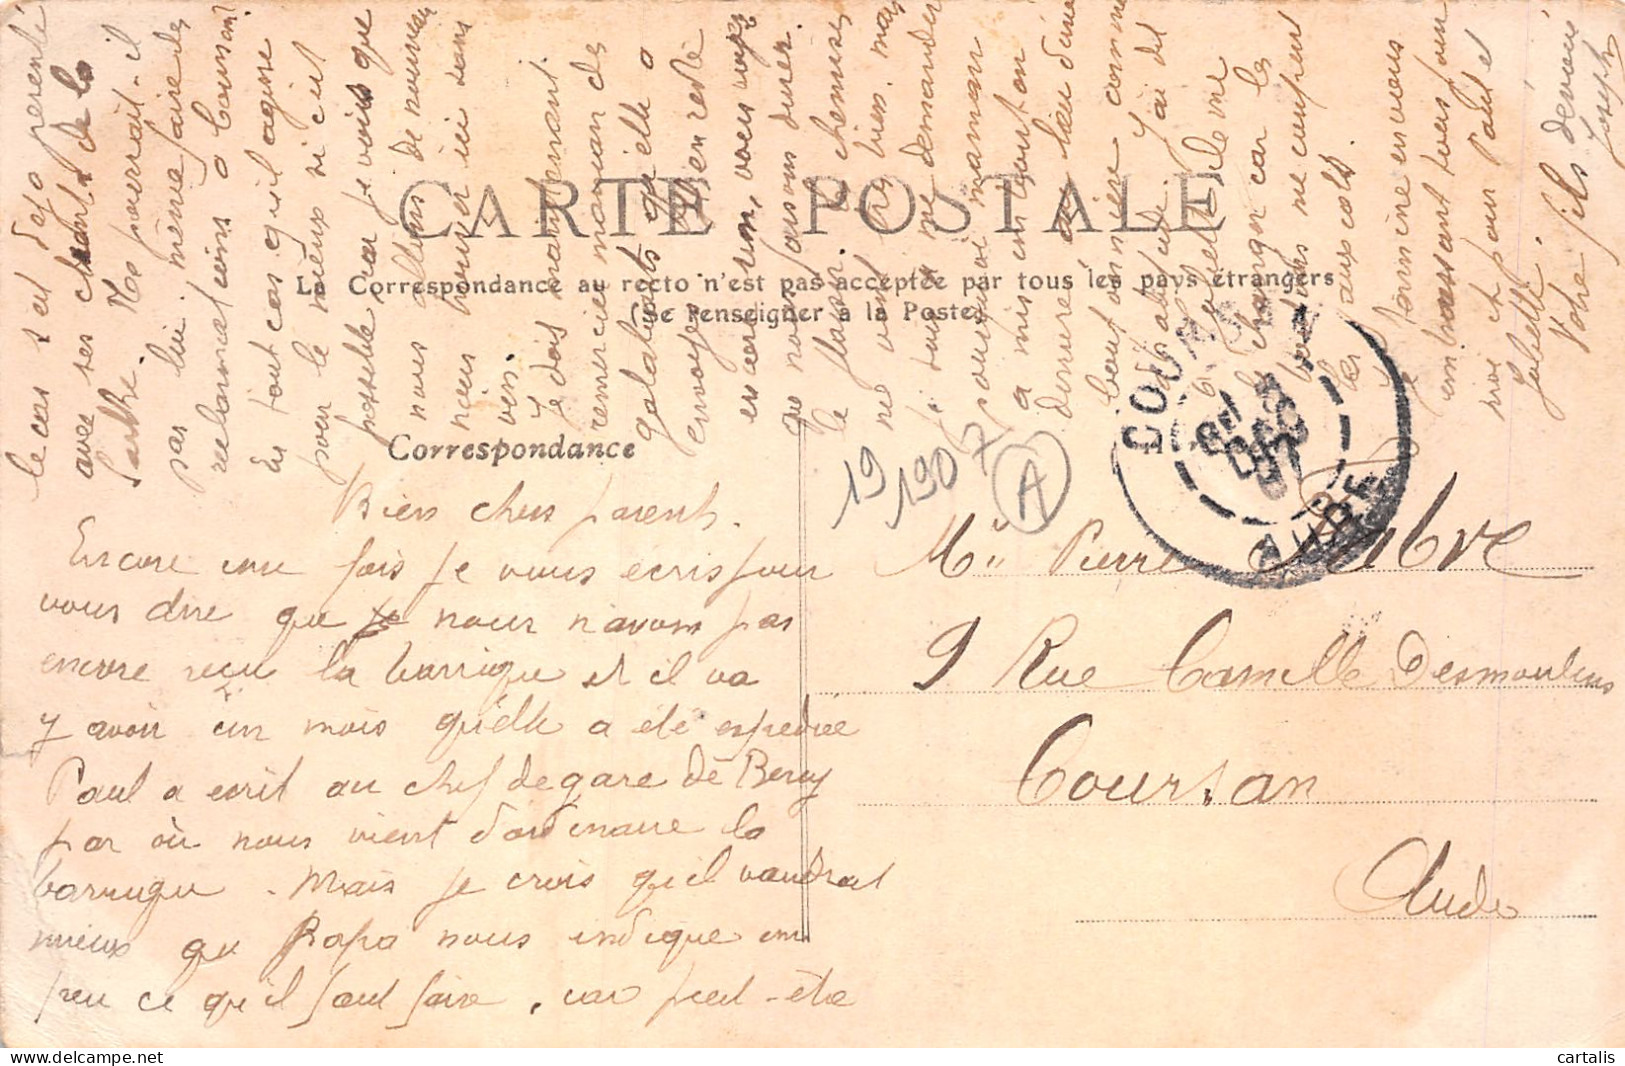 CARTE POSTALE
La Correspondance au recto n'est pas acceptée par tous les pays étrangers
(Se renseigner à la Poste)
Correspondance
Bien chers parents.
Encore une fois je vous ecris pour
vous dire que nous n'avons pas
encore reçu la barrique et il va
y avoir un mois qu'elle a été expediée
Paul a ecrit au chef de gare de Bercy
par où nous vient d'ordinaire la
barrique. Mais je crois qu'il vaudrait
mieux que Papa nous indique un
peu ce qu'il faut faire, car peut-être
le cas s'est dejà presenté
avec ses clients de la
Sarthe. Nos pourrait-il
pas lui même faire des
reclamations à Coursan?
En tout cas qu'il agisse
pour le mieux si c'est
possible car je vois que
nous allons de nouveau
nous trouver ici sans
vin.
Je dois maintenant
remercier maman des
galoches qu'elle a
envoyé
encore un, vous voyez
que nous faisons durer.
le
ne vont très bien. mais
je dois me demander
pourquoi maman
a mis en
dessous au lieu d'une
boutonnière comme
d'habitude. J'ai dit
à Juliette de me
changer car les
boutons me coupent
les faux cols.
Je termine en vous
embrassant tous pour
moi et pour Paul et
Juliette.
Votre fils dévoué
Joseph
19
1907
A
COURSAN
DEC
07
AUDE
Mr Pierre
9 Rue Camille Desmoulins
Coursan
Aude
cartalis